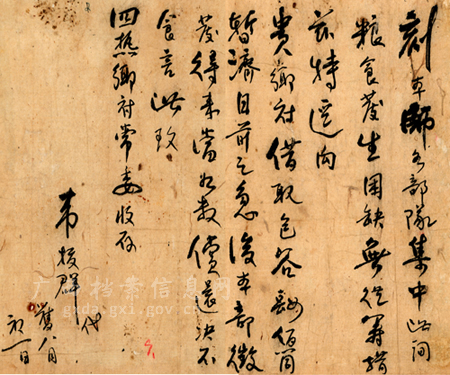 刻本師各部隊集中此间
粮食發生困缺無從籌措
茲特逕向
貴鄉府借取包谷佰筒
暫濟目前之急後本部徵
發得来當如数償還决不
食言此致
四鄉府常委收存
韦拔群 代
舊八月
初一日
广西档案信息网
gxda.gxi.gov.cn